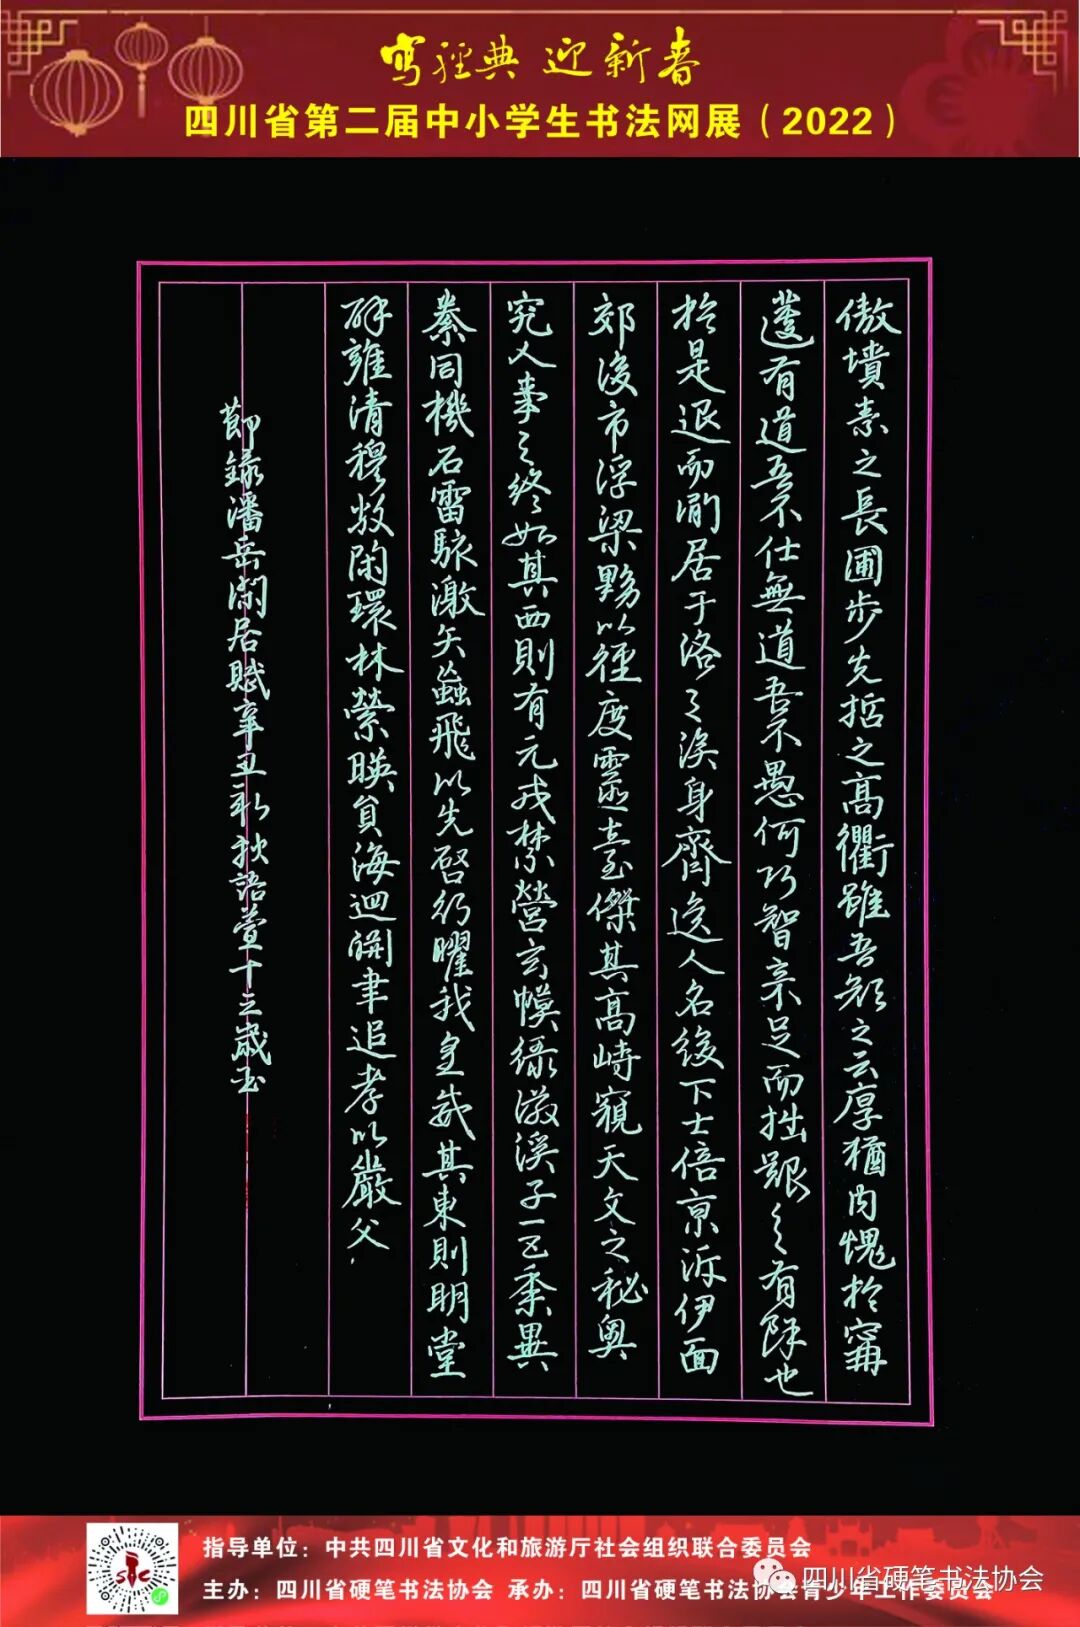 写经典 迎新春
四川省第二届中小学生书法网展（2022）
傲墳素之長圃步先哲之高衢雖吾顏之云厚猶內愧於甯
蘧有道吾不仕無道吾不愚何巧智之不足而拙艱之有餘也
於是退而閑居于洛之涘身齊逸人名後下士倍京泝伊面
郊後市浮梁黝以徑度靈臺傑其高峙窺天文之秘奧
究人事之終始其西則有元戎禁營玄幙綠徽溪子巨黍異
絭同機石雷駭激矢蝱飛以先啓行曜我皇威其東則明堂
辟雍清穆敞閑環林縈映員海迴淵聿追孝以嚴父
節錄潘岳閑居賦辛丑新秋語萱十三歲書
指导单位：中共四川省文化和旅游厅社会组织联合委员会
主办：四川省硬笔书法协会 承办：四川省硬笔书法协会青少年工作委员会
四川省硬笔书法协会